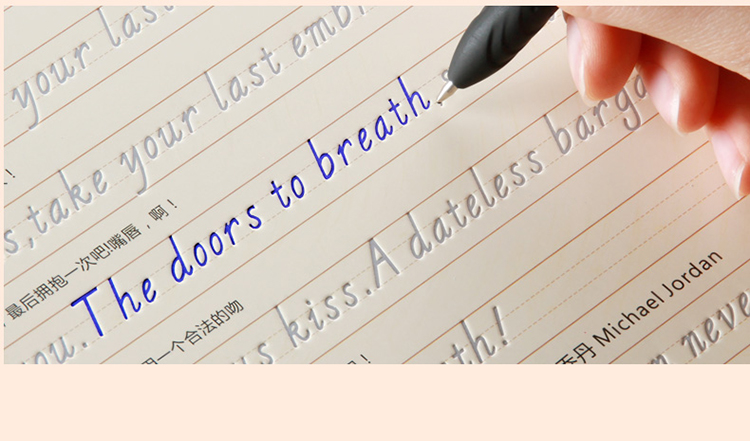 your last
s,take your last emb
！
，最后拥抱一次吧!嘴唇，啊！
you.The doors to breath
一个合法的吻
s kiss.A dateless barga
！
th!
乔丹 Michael Jordan
n neve